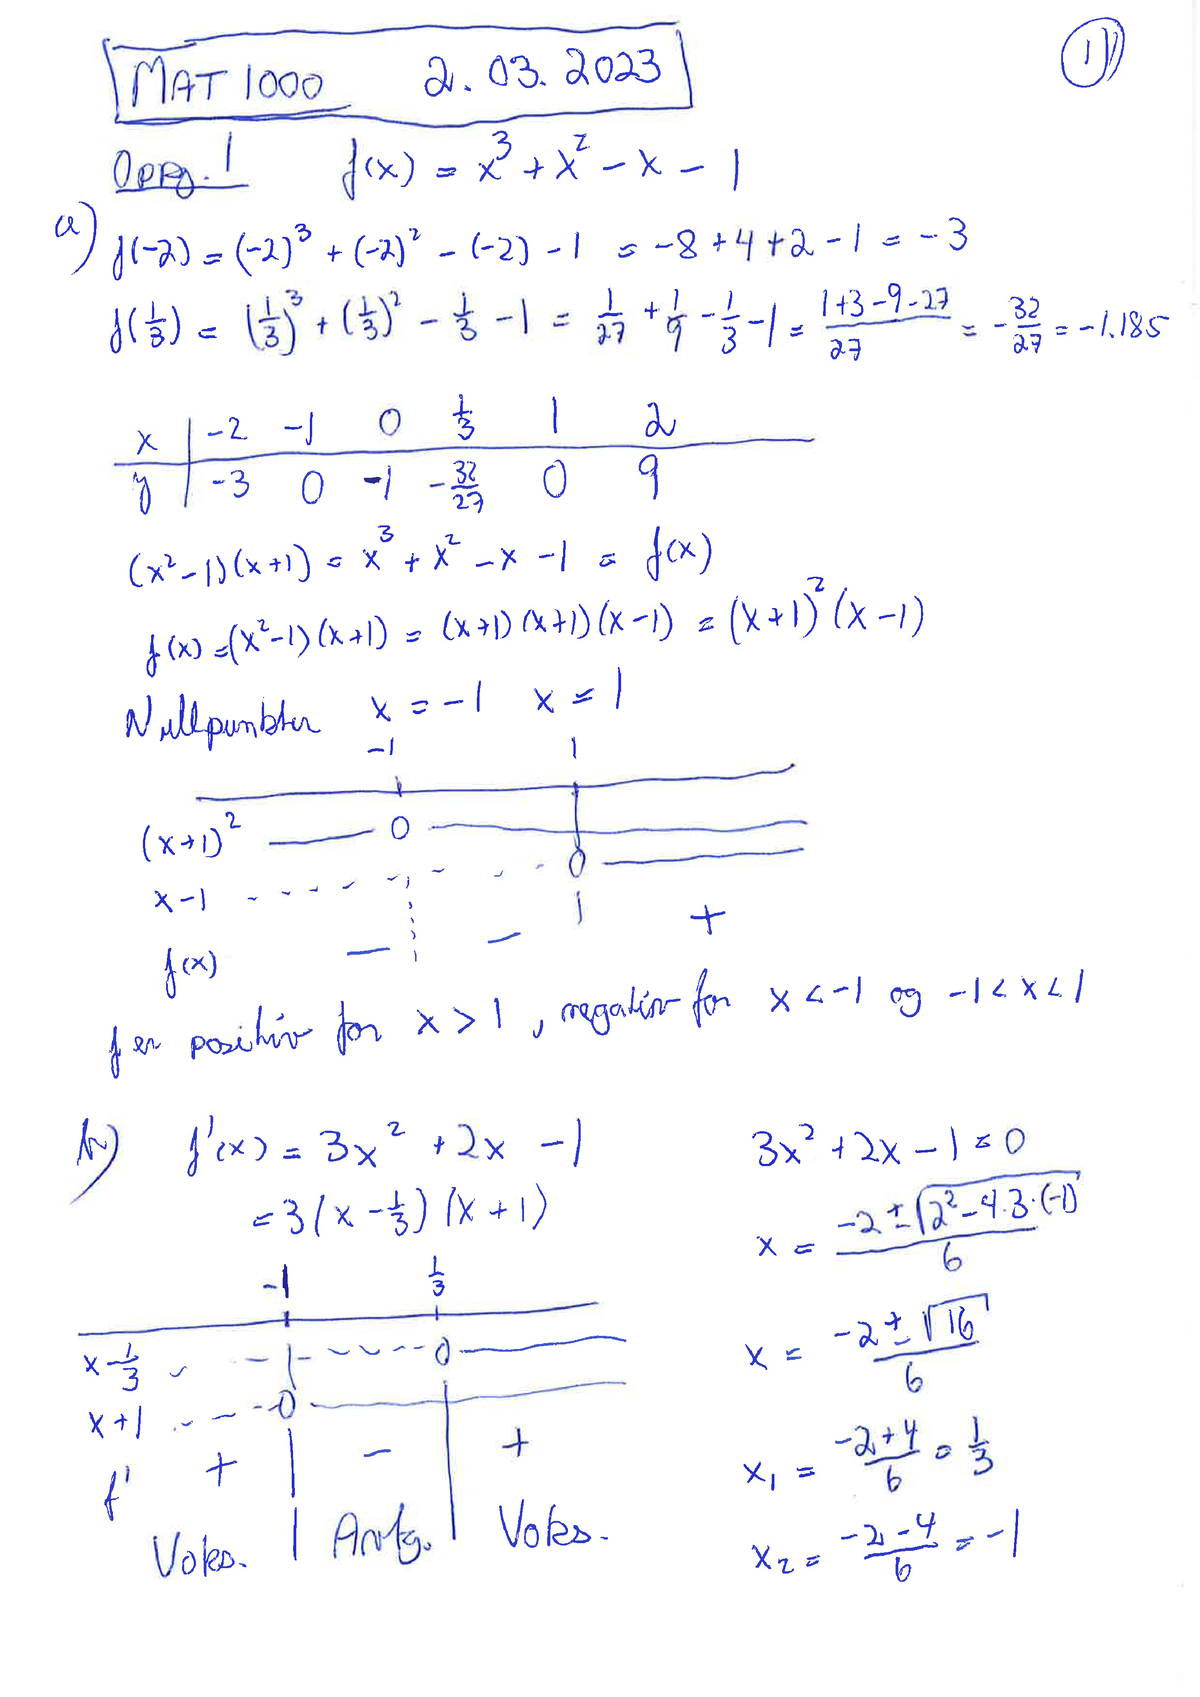 MAT 1000 2.03.2023
1
Oppg. 1 f(x) = x³ + x² - x - 1
a) f(-2) = (-2)³ + (-2)² - (-2) - 1 = -8 + 4 + 2 - 1 = -3
f(1/3) = (1/3)³ + (1/3)² - 1/3 - 1 = 1/27 + 1/9 - 1/3 - 1 = (1+3-9-27)/27 = -32/27 = -1.185
x | -2 -1 0 1/3 1 2
y | -3 0 -1 -32/27 0 9
(x²-1)(x+1) = x³ + x² - x - 1 = f(x)
f(x) = (x²-1)(x+1) = (x+1)(x+1)(x-1) = (x+1)²(x-1)
Nullpunkter x = -1 x = 1
-1 1
(x+1)² 0
x-1 0
f(x) - - +
f er positiv for x > 1, negativ for x < -1 og -1 < x < 1
b) f'(x) = 3x² + 2x - 1
= 3(x - 1/3)(x + 1)
-1 1/3
x - 1/3 0
x+1 0
f' + - +
Voks. Avtg. Voks.
3x² + 2x - 1 = 0
x = (-2 ± √(2² - 4·3·(-1)))/6
x = (-2 ± √16)/6
x₁ = (-2+4)/6 = 1/3
x₂ = (-2-4)/6 = -1